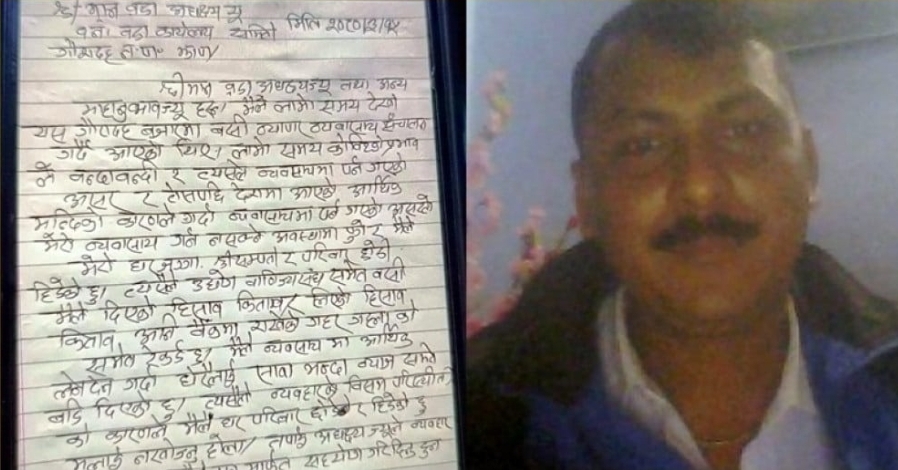 श्री मान वडा अध्यक्ष ज्यू
१ नं. वडा कार्यालय मिति २०८०/३/१५
गौरादह न.पा. झापा
श्रीमान वडा अध्यक्षज्यू तथा अन्य
माहानुभावज्यू हरू। मैले लामो समय देखी
यस गौरादह बजारमा बसी व्यापार व्यवसाय संचालन
गर्दै आएको थिए। लामो समय कोभिडको प्रभाव
ले बन्दाबन्दी र त्यसले व्यवसायमा पर्न गएको
असर र त्यसपछि देशमा आएको आर्थिक
मन्दिको कारणले गर्दा व्यवसायमा पर्न गएको असरले
मेरो व्यवसाय गर्न नसक्ने अवस्थामा पुगे र मैले
मेरो घर जग्गा, श्रीसम्पती र परिवार छोडी
हिडेको छु। त्यसैले उद्योग वाणिज्यसंघ समेत बसी
मैले दिएको हिसाब किताब र लिएको हिसाब
किताब बैंकमा राखेको गहना को
समेत रेकर्ड छ। मैले व्यवसाय मा आर्थिक
लेनदेन गर्दा भन्दा ब्याज समेत
बढि दिएको छु। त्यसैले व्यवहारको विसम परिस्थिती
को कारणले मैले घर परिवार छोडेर हिडेको छु
मलाई नखोज्नु होला। तपाई अध्यक्ष ज्यूले व्यवहार
मार्फत सहयोग गरिदिनु हुन